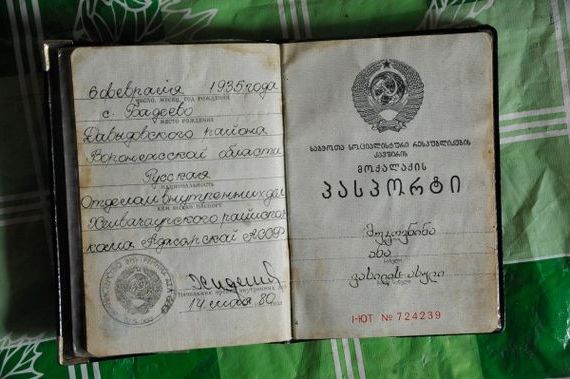 6 февраля 1935 года
число, месяц, год рождения
с. Бадеево
место рождения
Давыдовского района
Воронежской области
Русская
национальность
Отделом внутренних дел
кем выдан паспорт
Хелвачаурского райисполкома Аджарской АССР
14 мая 80 года
საბჭოთა სოციალისტური რესპუბლიკების
კავშირის
მოქალაქის
პასპორტი
ანა
სახელი
ვასილის ასული
I-ЮТ № 724239